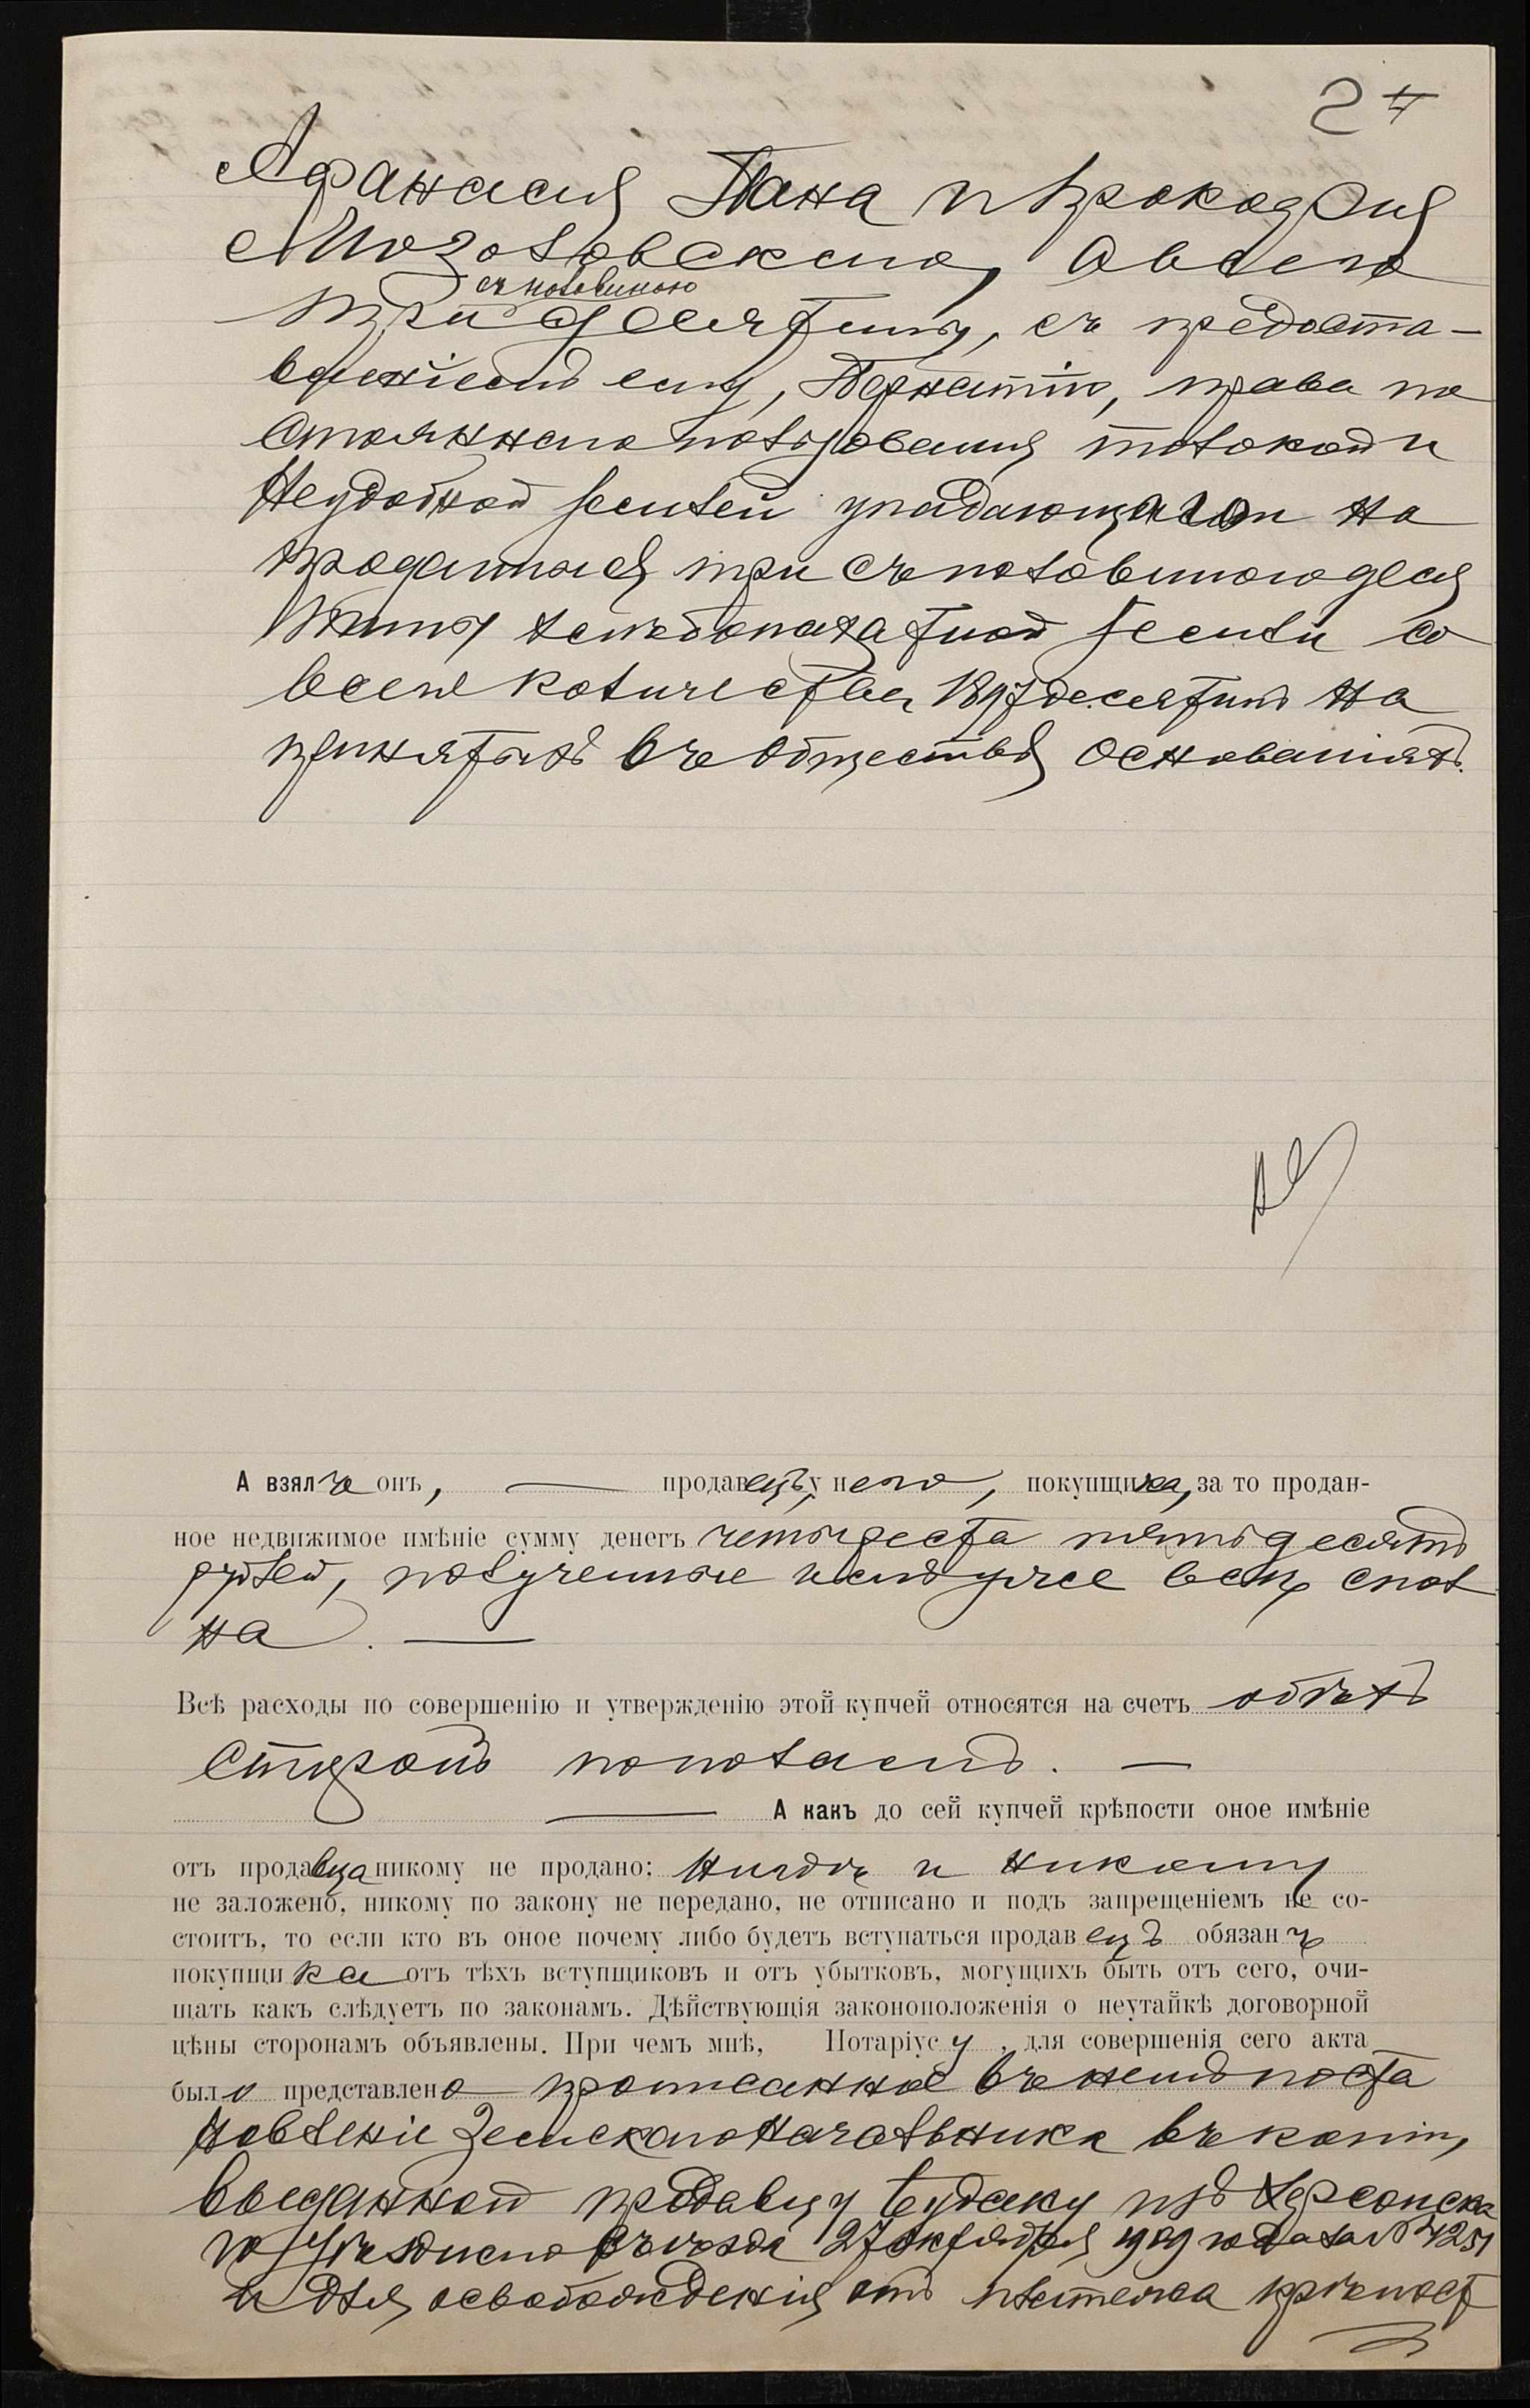 24
Афанасія Пана и Прокофія
Мозолевскаго, а всего
съ половиною
три десятины, съ предоста-
вленіемъ ему, Пернатію, права по
стояннаго пользованія толокой и
неудобной землей упадающаго на
проданныя три съ половиною деся
тины усадьбопахатной земли со
всего количества 1897 десятинъ на
принятыхъ въ обществѣ основаніяхъ.
А взялъ онъ, — продавецъ, у него, покупщика, за то продан-
ное недвижимое имѣніе сумму денегъ четыреста пятьдесятъ
рублей, полученные имъ уже всѣ спол
на. —
Всѣ расходы по совершенію и утвержденію этой купчей относятся на счетъ обѣихъ
сторонъ пополамъ. —
— А какъ до сей купчей крѣпости оное имѣніе
отъ продавца никому не продано: нигдѣ и никому
не заложено, никому по закону не передано, не отписано и подъ запрещеніемъ не со-
стоитъ, то если кто въ оное почему либо будетъ вступаться продавецъ обязанъ
покупщика отъ тѣхъ вступщиковъ и отъ убытковъ, могущихъ быть отъ сего, очи-
щать какъ слѣдуетъ по законамъ. Дѣйствующія законоположенія о неутайкѣ договорной
цѣны сторонамъ объявлены. При чемъ мнѣ, Нотаріусу, для совершенія сего акта
было представлено прописанное въ немъ поста
новленіе Земскаго Начальника въ копіи,
выданной продавцу Будаку изъ Херсонска
го Уѣзднаго съѣзда 27 октября 1909 года за № 4251
и для освобожденія отъ платежа крѣпост